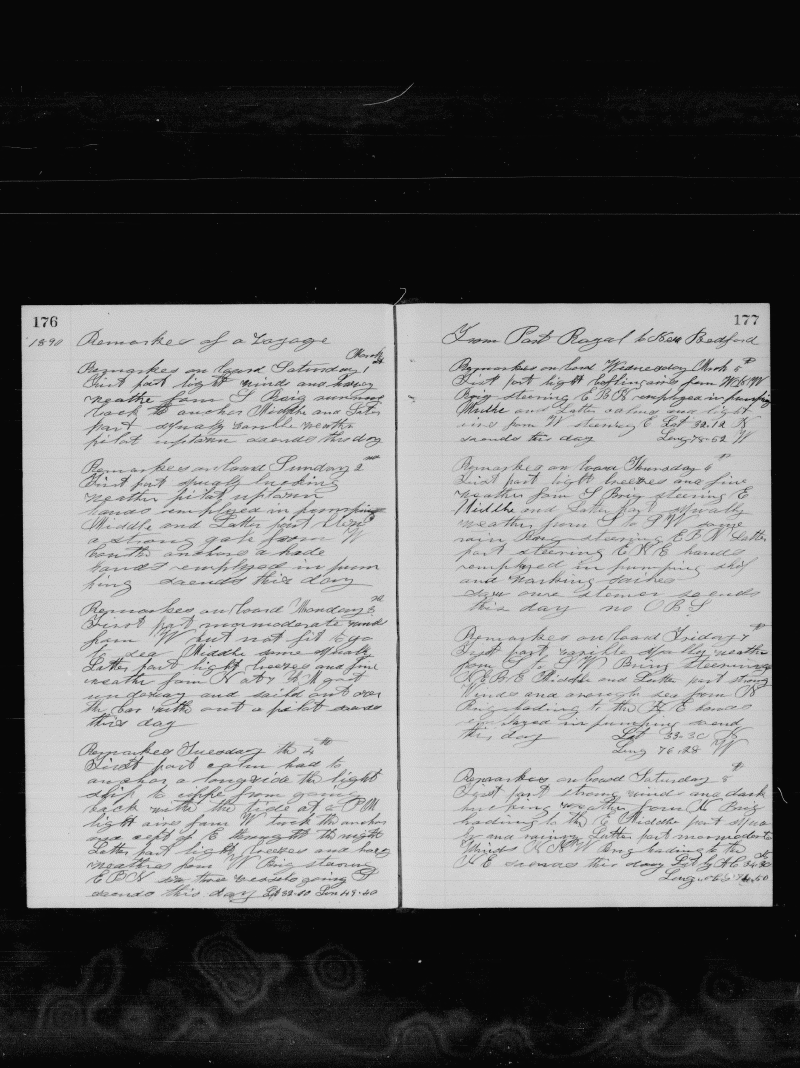 176
1890 Remarkes of a Voyage
March
Remarkes on board Saturday 1
First part light winds and hasey
weather from S Brig
back to anchor Middle and Later
part squaly weather
pilot uptown soends this day
Remarkes on board Sunday 2
First part squaly
weather pilot uptown
hands employed in pumping
Middle and Latter part
a strong gale from W
anchors a hade
hands employed in pum
ping soends this day
Remarkes on board Monday 3
First part mormoderate winds
from W but not fit to go
to sea Middle some squaly
Latter part light breezes and fine
weather from N at 7 A M got
underway and saild out over
the bar with out a pilot soends
this day
Remarkes Tuesday the 4th
First part calm had to
anchor a longside the light
ship to from going
back with the tide at 6 P M
light aires from W took the anchor
and kept of E through the night
Latter part light breezes and hasey
weather from W Brig steering
E B N two vessels going S
soends this day Lat 32-10 Lon 79-40
177
From Port Royal to New Bedford
Remarkes on board Wednesday March 5
First part light bafling aires from W to NW
Brig steering E B N employed in pumping
Middle and Latter calms and light
aires from W steering E Lat 32-12 N
soends this day Long 78-52 W
Remarkes on board Thursday 6
First part light breezes and fine
weather from S Brig steering E
Middle and Latter part squally
weather from S to S W some
rain Brig steering E B N Latter
part steering E N E hands
employed in pumping ship
and
saw one stemer soends
this day no O B S
Remarkes on board Friday 7
First part squally weather
from S to S W Brig steering
N E B E Middle and Latter part strong
winds and enough sea from N
Brig heading to the E hands
employed in pumping soend
this day Lat 33-30 N
Long 76-28 W
Remarkes on board Saturday 8
First part strong winds and dark
weather from N Brig
heading to the E Middle part squa
ly and rainy Latter part mormoderte
Winds N N W Brig heading to the
N E soends this day Lat
Long